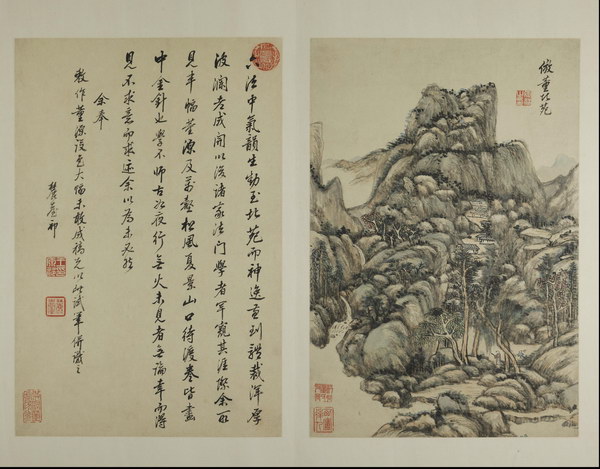 六法中氣韻生動至北苑而神逸兼到體裁渾厚
波瀾老成開以後諸家法門學者罕窺其涯際余所
見半幅董源及萬壑松風夏景山口待渡卷皆畫
中金針也學不師古如夜行無火未見者無論幸而得
見不求意而求迹余以為未必然
余奉
教作董源設色大幅未敢成稿先以此試筆併識之
麓臺祁
倣董北苑